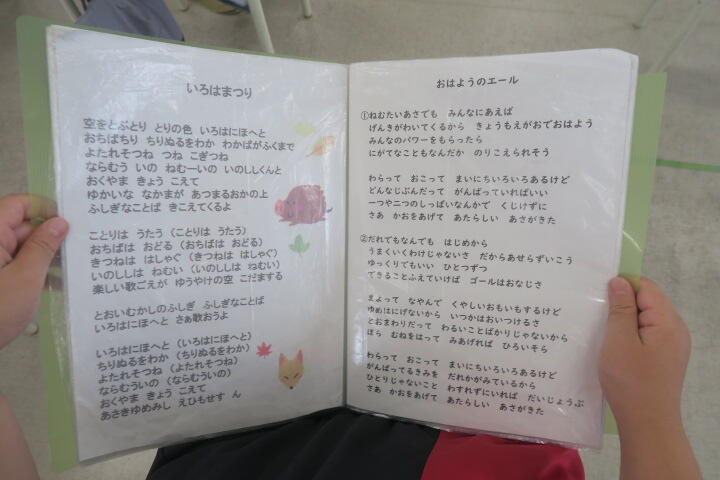 いろはまつり
空をとぶとり とりの色 いろはにほへと
おちばちり ちりぬるをわか わかばがふくまで
よたれそつね つね こぎつね
ならむう いの ねむーいの いのししくんと
おくやま きょう こえて
ゆかいな なかまが あつまるおかの上
ふしぎなことば きこえてくるよ
ことりは うたう（ことりは うたう）
おちばは おどる（おちばは おどる）
きつねは はしゃぐ（きつねは はしゃぐ）
いのししは ねむい（いのししは ねむい）
楽しい歌ごえが ゆうやけの空 こだまする
とおいむかしのふしぎ ふしぎなことば
いろはにほへと さぁ歌おうよ
いろはにほへと（いろはにほへと）
ちりぬるをわか（ちりぬるをわか）
よたれそつね（よたれそつね）
ならむういの（ならむういの）
おくやま きょう こえて
あさきゆめみし えひもせす ん
おはようのエール
①ねむたいあさでも みんなにあえば
げんきがわいてくるから きょうもえがおでおはよう
みんなのパワーをもらったら
にがてなこともなんだか のりこえられそう
わらって おこって まいにちいろいろあるけど
どんなじぶんだって がんばっていればいい
一つや二つのしっぱいなんかで くじけずに
さあ かおをあげて あたらしい あさがきた
②だれでもなんでも はじめから
うまくいくわけじゃないさ だからあせらずいこう
ゆっくりでもいい ひとつずつ
できることふえていけば ゴールはおなじさ
まよって なやんで くやしいおもいもするけど
ゆめはにげないから いつかはおいつけるさ
とおまわりだって わるいことばかりじゃないから
ほら むねをはって みあげれば ひろいそら
わらって おこって まいにちいろいろあるけど
がんばってるきみを だれかがみているから
ひとりじゃないこと わすれずにいれば だいじょうぶ
さあ かおをあげて あたらしい あさがきた